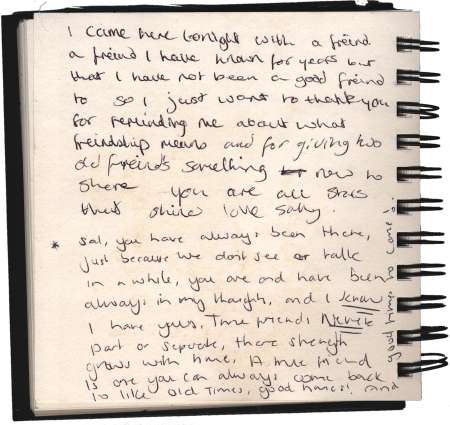 I came here tonight with a freind
a freind I have known for years but
that I have not been a good freind
to so I just want to thank you
for reminding me about what
freindship means and for giving two
old freinds something new to
share you are all stars
that shine love Sally.
* Sal, you have always been there,
just because we dont see or talk
in a while, you are and have been
always in my thoughts, and I know
I have yous. True friends Never
part or seperate, there strength
grows with time, A true friend
is one you can always come back
to like old times, good times! and
good times to come